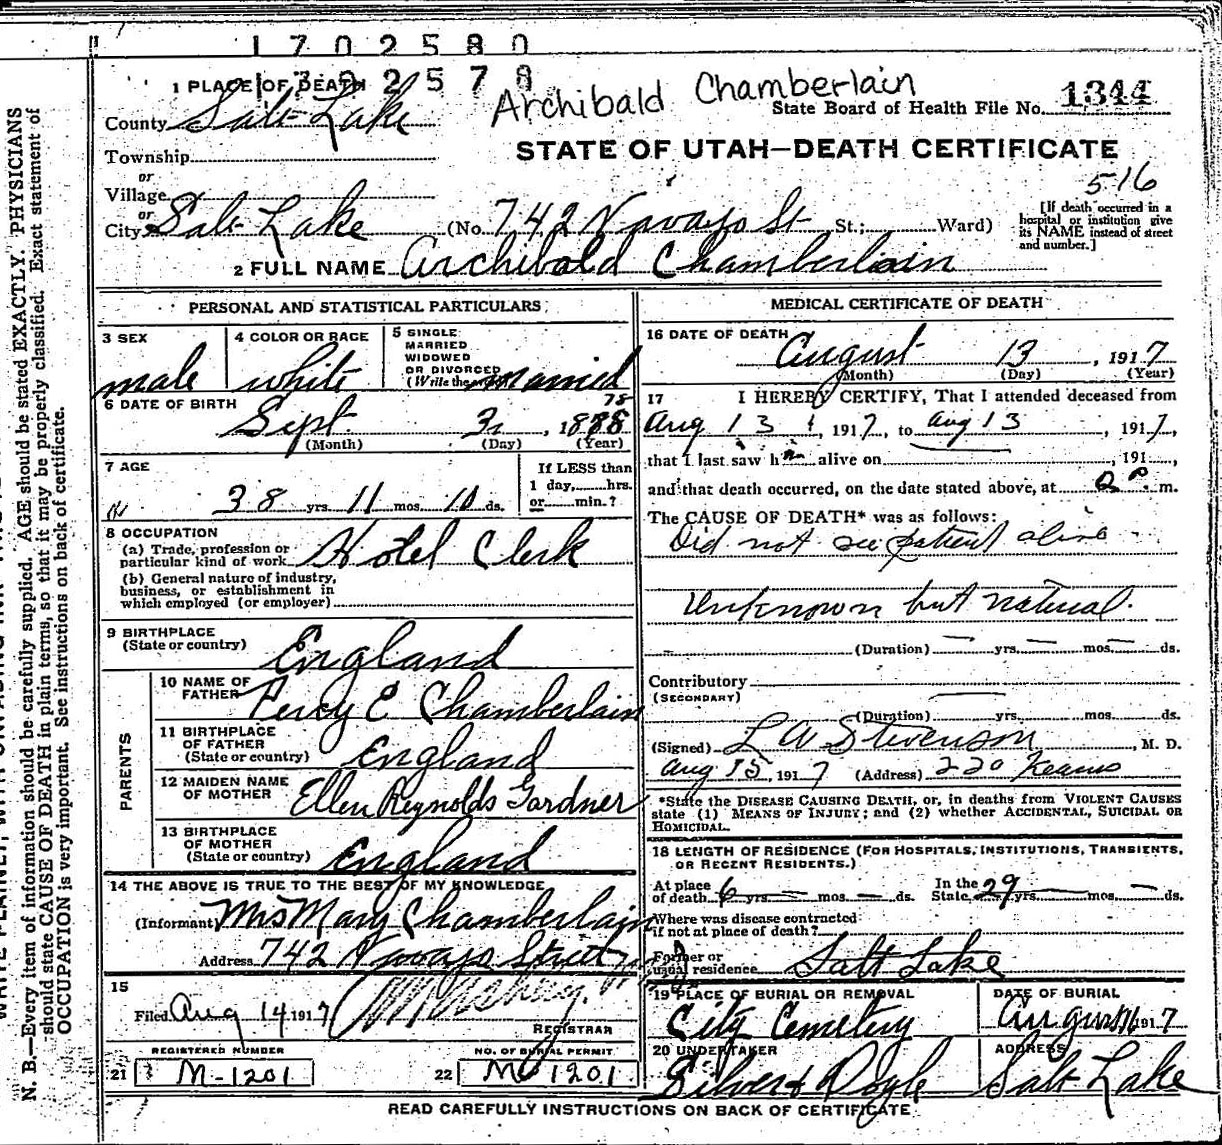 1702580
1302578
Archibald Chamberlain
1 PLACE OF DEATH
State Board of Health File No. 1344
County Salt Lake
Township
STATE OF UTAH—DEATH CERTIFICATE
or
Village
516
or
City Salt Lake (No. 742 Navajo St St.; Ward)
[If death occurred in a hospital or institution give its NAME instead of street and number.]
2 FULL NAME Archibald Chamberlain
PERSONAL AND STATISTICAL PARTICULARS
3 SEX
male
4 COLOR OR RACE
white
5 SINGLE
MARRIED
WIDOWED
OR DIVORCED
(Write the married
6 DATE OF BIRTH
78
Sept 3, 188
(Month) (Day) (Year)
7 AGE
38 yrs 11 mos. 10 ds.
If LESS than
1 day, hrs.
or min.?
8 OCCUPATION
(a) Trade, profession or
particular kind of work Hotel Clerk
(b) General nature of industry,
business, or establishment in
which employed (or employer)
9 BIRTHPLACE
(State or country) England
PARENTS
10 NAME OF
FATHER Percy E Chamberlain
11 BIRTHPLACE
OF FATHER
(State or country) England
12 MAIDEN NAME
OF MOTHER Ellen Reynolds Gardner
13 BIRTHPLACE
OF MOTHER
(State or country) England
14 THE ABOVE IS TRUE TO THE BEST OF MY KNOWLEDGE
(Informant Mrs Mary Chamberlain
Address 742 Navajo Street
15
Filed Aug 14 1917
REGISTRAR
REGISTERED NUMBER
21 M-1201
NO. OF BURIAL PERMIT
22 M 1201
MEDICAL CERTIFICATE OF DEATH
16 DATE OF DEATH
August 13, 1917
(Month) (Day) (Year)
17 I HEREBY CERTIFY, That I attended deceased from
Aug 13, 1917, to Aug 13, 1917,
that I last saw h alive on , 191 ,
and that death occurred, on the date stated above, at m.
The CAUSE OF DEATH* was as follows:
Did not see patient alive
Unknown but natural.
(Duration) — yrs. — mos. — ds.
Contributory
(SECONDARY)
(Duration) yrs. mos. ds.
(Signed) L W Stevenson, M. D.
Aug 15, 1917 (Address) 220 Kearns
*State the DISEASE CAUSING DEATH, or, in deaths from VIOLENT CAUSES
state (1) MEANS OF INJURY; and (2) whether ACCIDENTAL, SUICIDAL OR
HOMICIDAL.
18 LENGTH OF RESIDENCE (FOR HOSPITALS, INSTITUTIONS, TRANSIENTS,
OR RECENT RESIDENTS.)
At place
of death 6 yrs — mos. — ds.
In the
State 29 yrs. mos. — ds.
Where was disease contracted
if not at place of death?
Former or
usual residence Salt Lake
19 PLACE OF BURIAL OR REMOVAL
City Cemetery
DATE OF BURIAL
August 16 1917
20 UNDERTAKER
ADDRESS
Salt Lake
READ CAREFULLY INSTRUCTIONS ON BACK OF CERTIFICATE.
N. B.—Every item of information should be carefully supplied. AGE should be stated EXACTLY. PHYSICIANS
should state CAUSE OF DEATH in plain terms, so that it may be properly classified. Exact statement of
OCCUPATION is very important. See instructions on back of certificate.